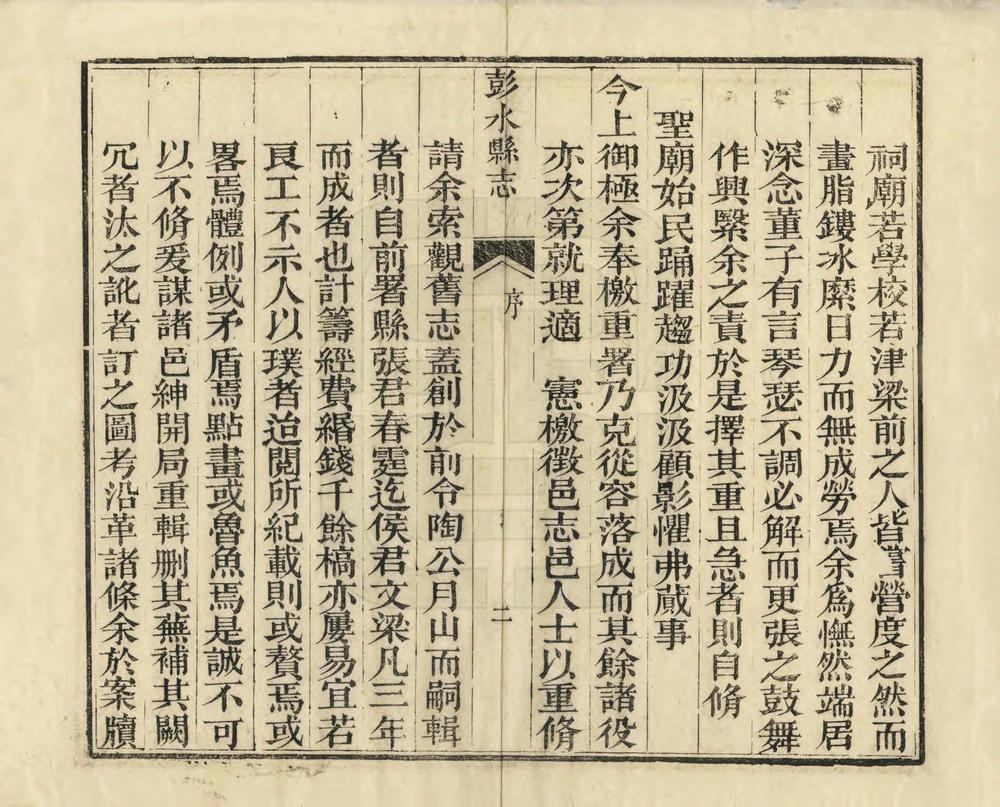 祠廟若學校若津梁前之人皆嘗營度之然而
畫脂鏤冰縻日力而無成勞焉余爲憮然端居
深念董子有言琴瑟不調必解而更張之鼓舞
作興繄余之責於是擇其重且急者則自脩
聖廟始民踊躍趨功汲汲顧影懼弗蕆事
今上御極余奉檄重署乃克從容落成而其餘諸役
亦次第就理適 憲檄徵邑志邑人士以重脩
彭水縣志 序 二
請余索觀舊志蓋創於前令陶公月山而嗣輯
者則自前署縣張君春霆迄侯君文梁凡三年
而成者也計籌經費緡錢千餘槁亦屢易宜若
良工不示人以璞者迨閱所紀載則或贅焉或
畧焉體例或矛盾焉點畫或魯魚焉是誠不可
以不脩爰謀諸邑紳開局重輯删其蕪補其闕
冗者汰之訛者訂之圖考沿革諸條余於案牘